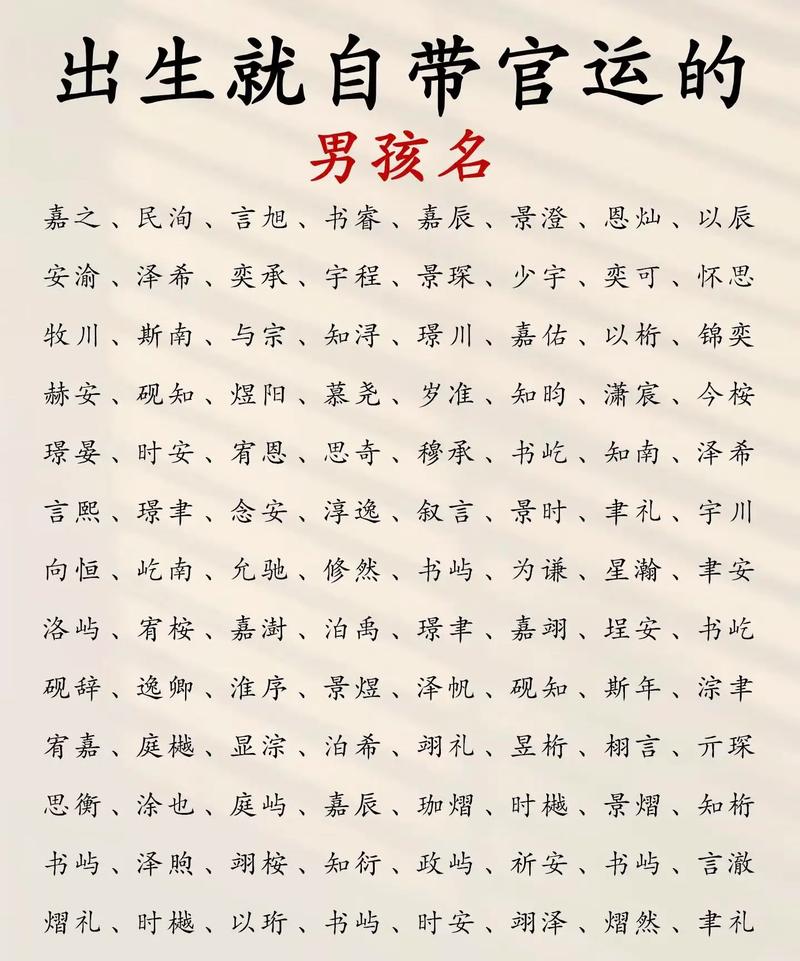 出生就自带官运的
男孩名
嘉之、民洵、言旭、书睿、嘉辰、景澄、恩灿、以辰
安渝、泽希、奕承、宇程、景琛、少宇、奕可、怀思
牧川、斯南、与宗、知浔、璟川、嘉佑、以桁、锦奕
赫安、砚知、煜阳、慕尧、岁准、知昀、潇宸、今桉
璟晏、时安、宥恩、思奇、穆承、书屹、知南、泽希
言熙、璟聿、念安、淳逸、叙言、景时、聿礼、宇川
向恒、屹南、允驰、修然、书屿、为谦、星瀚、聿安
洛屿、宥桉、嘉澍、泊禹、璟聿、嘉翊、珵安、书屹
砚辞、逸卿、淮序、景煜、泽帆、砚知、斯年、淙聿
宥嘉、庭樾、显淙、泊希、翊礼、昱桁、栩言、亓琛
思衡、涂也、庭屿、嘉辰、珈熠、时樾、景熠、知桁
书屿、泽煦、翊桉、知衍、政屿、祈安、书屿、言澈
熠礼、时樾、以珩、书屿、时安、翊泽、熠然、聿礼